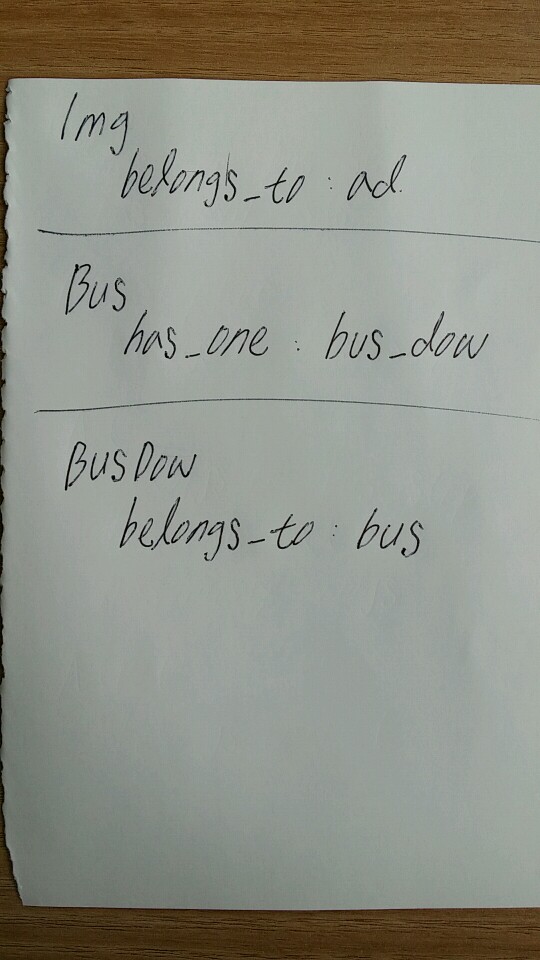 Img
belongs_to : ad
Bus
has_one : bus_dow
BusDow
belongs_to : bus